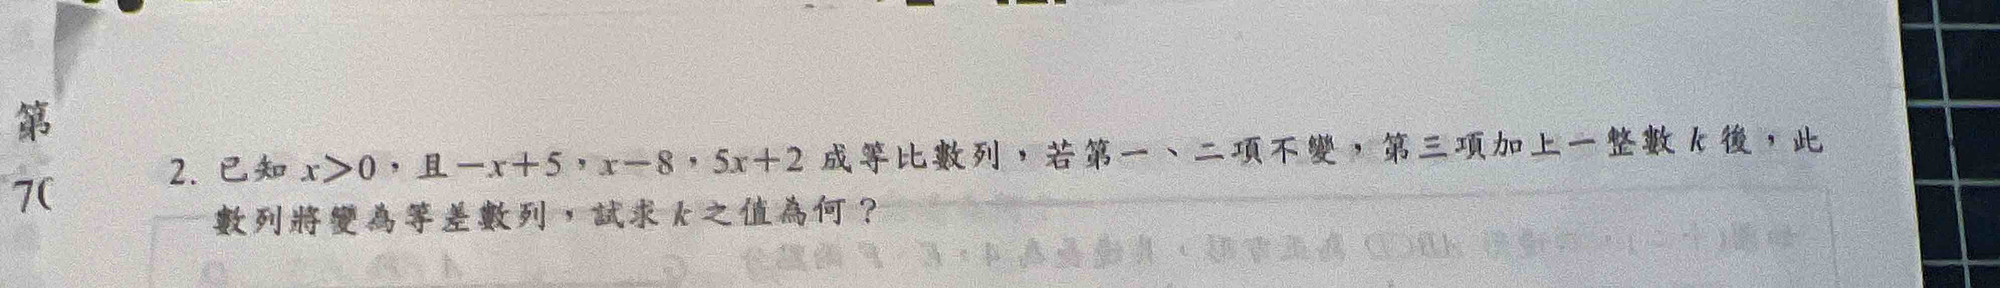 第
7(
2. 已知 x>0，且 −x+5，x−8，5x+2 成等比數列，若第一、二項不變，第三項加上一整數 k 後，此
數列將變為等差數列，試求 k 之值為何？